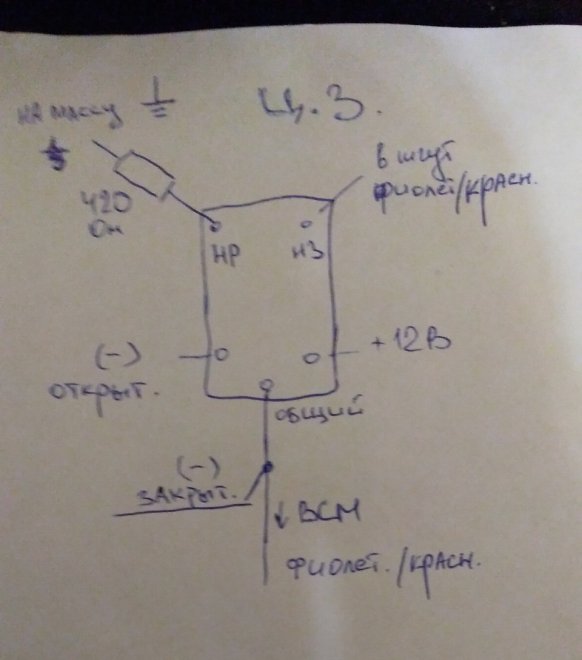 на массу
Ц.З.
в шгут
фиолет/красн.
420
Ом
НР
НЗ
(-)
открыт.
+12В
общий
(-)
закрыт.
↓ BCM
фиолет./красн.